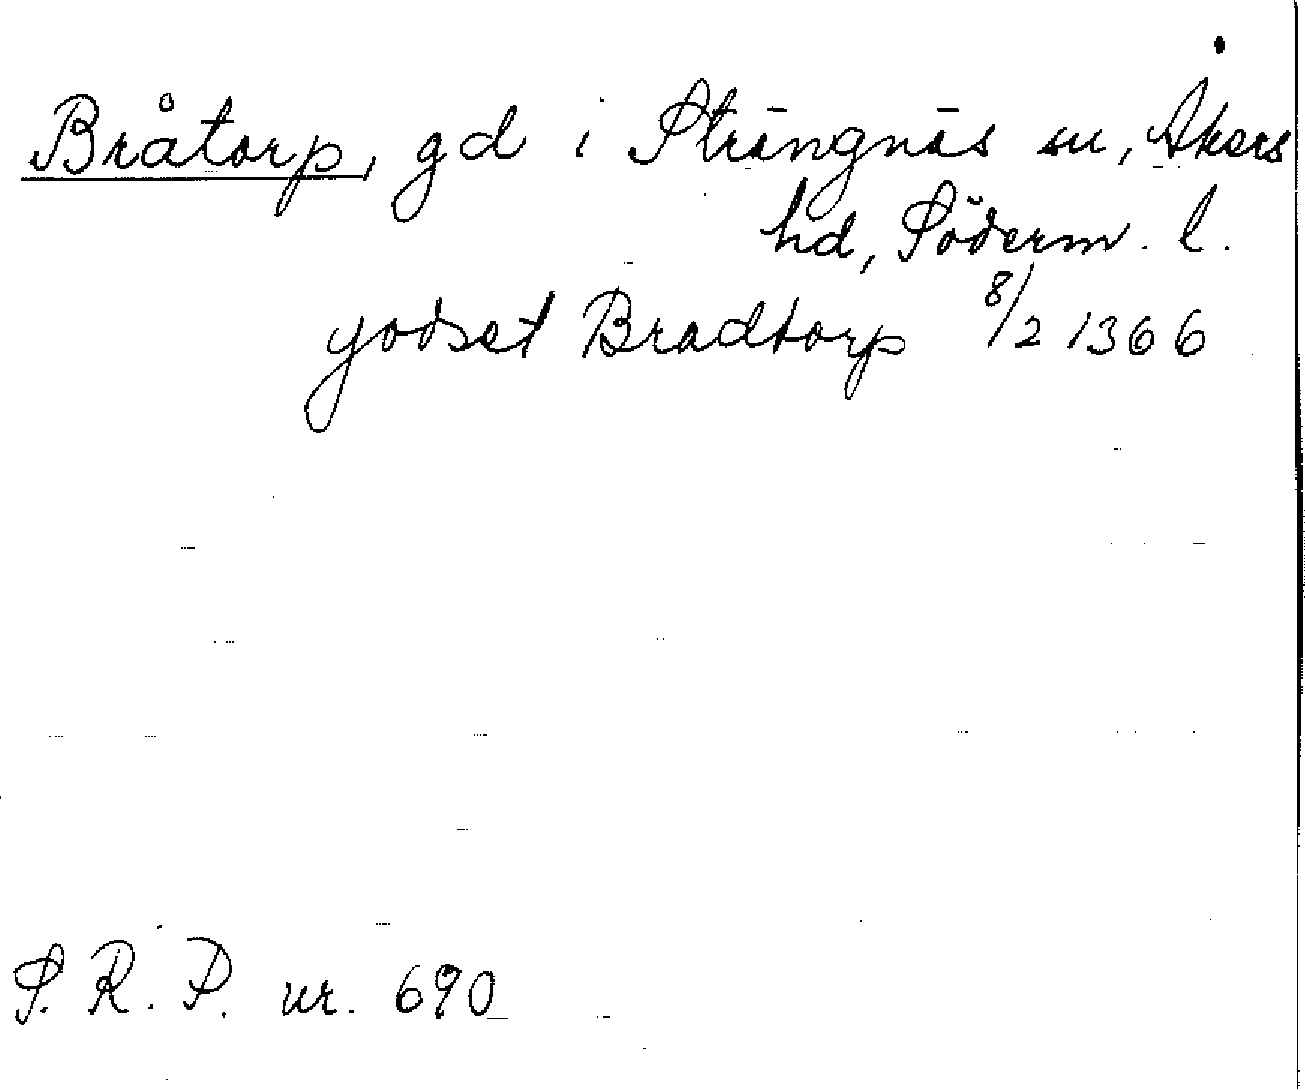 Bråtorp, gd i Strängnäs sn, Åkers
hd, Söderm. l.
godset Bradtorp 8/2 1366
S. R. P. nr. 690